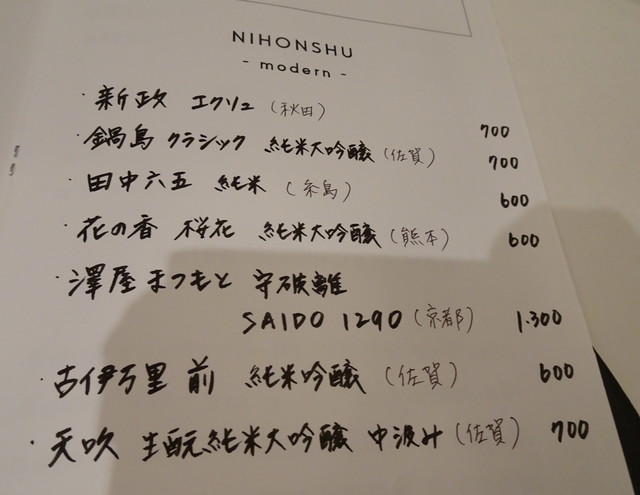 NIHONSHU
- modern -
・新政 エクリュ (秋田) 700
・鍋島 クラシック 純米大吟醸 (佐賀) 700
・田中六五 純米 (糸島) 600
・花の香 桜花 純米大吟醸 (熊本) 600
・澤屋まつもと 守破離
SAIDO 1290 (京都) 1.300
・古伊万里 前 純米吟醸 (佐賀) 600
・天吹 生酛純米大吟醸 中汲み (佐賀) 700